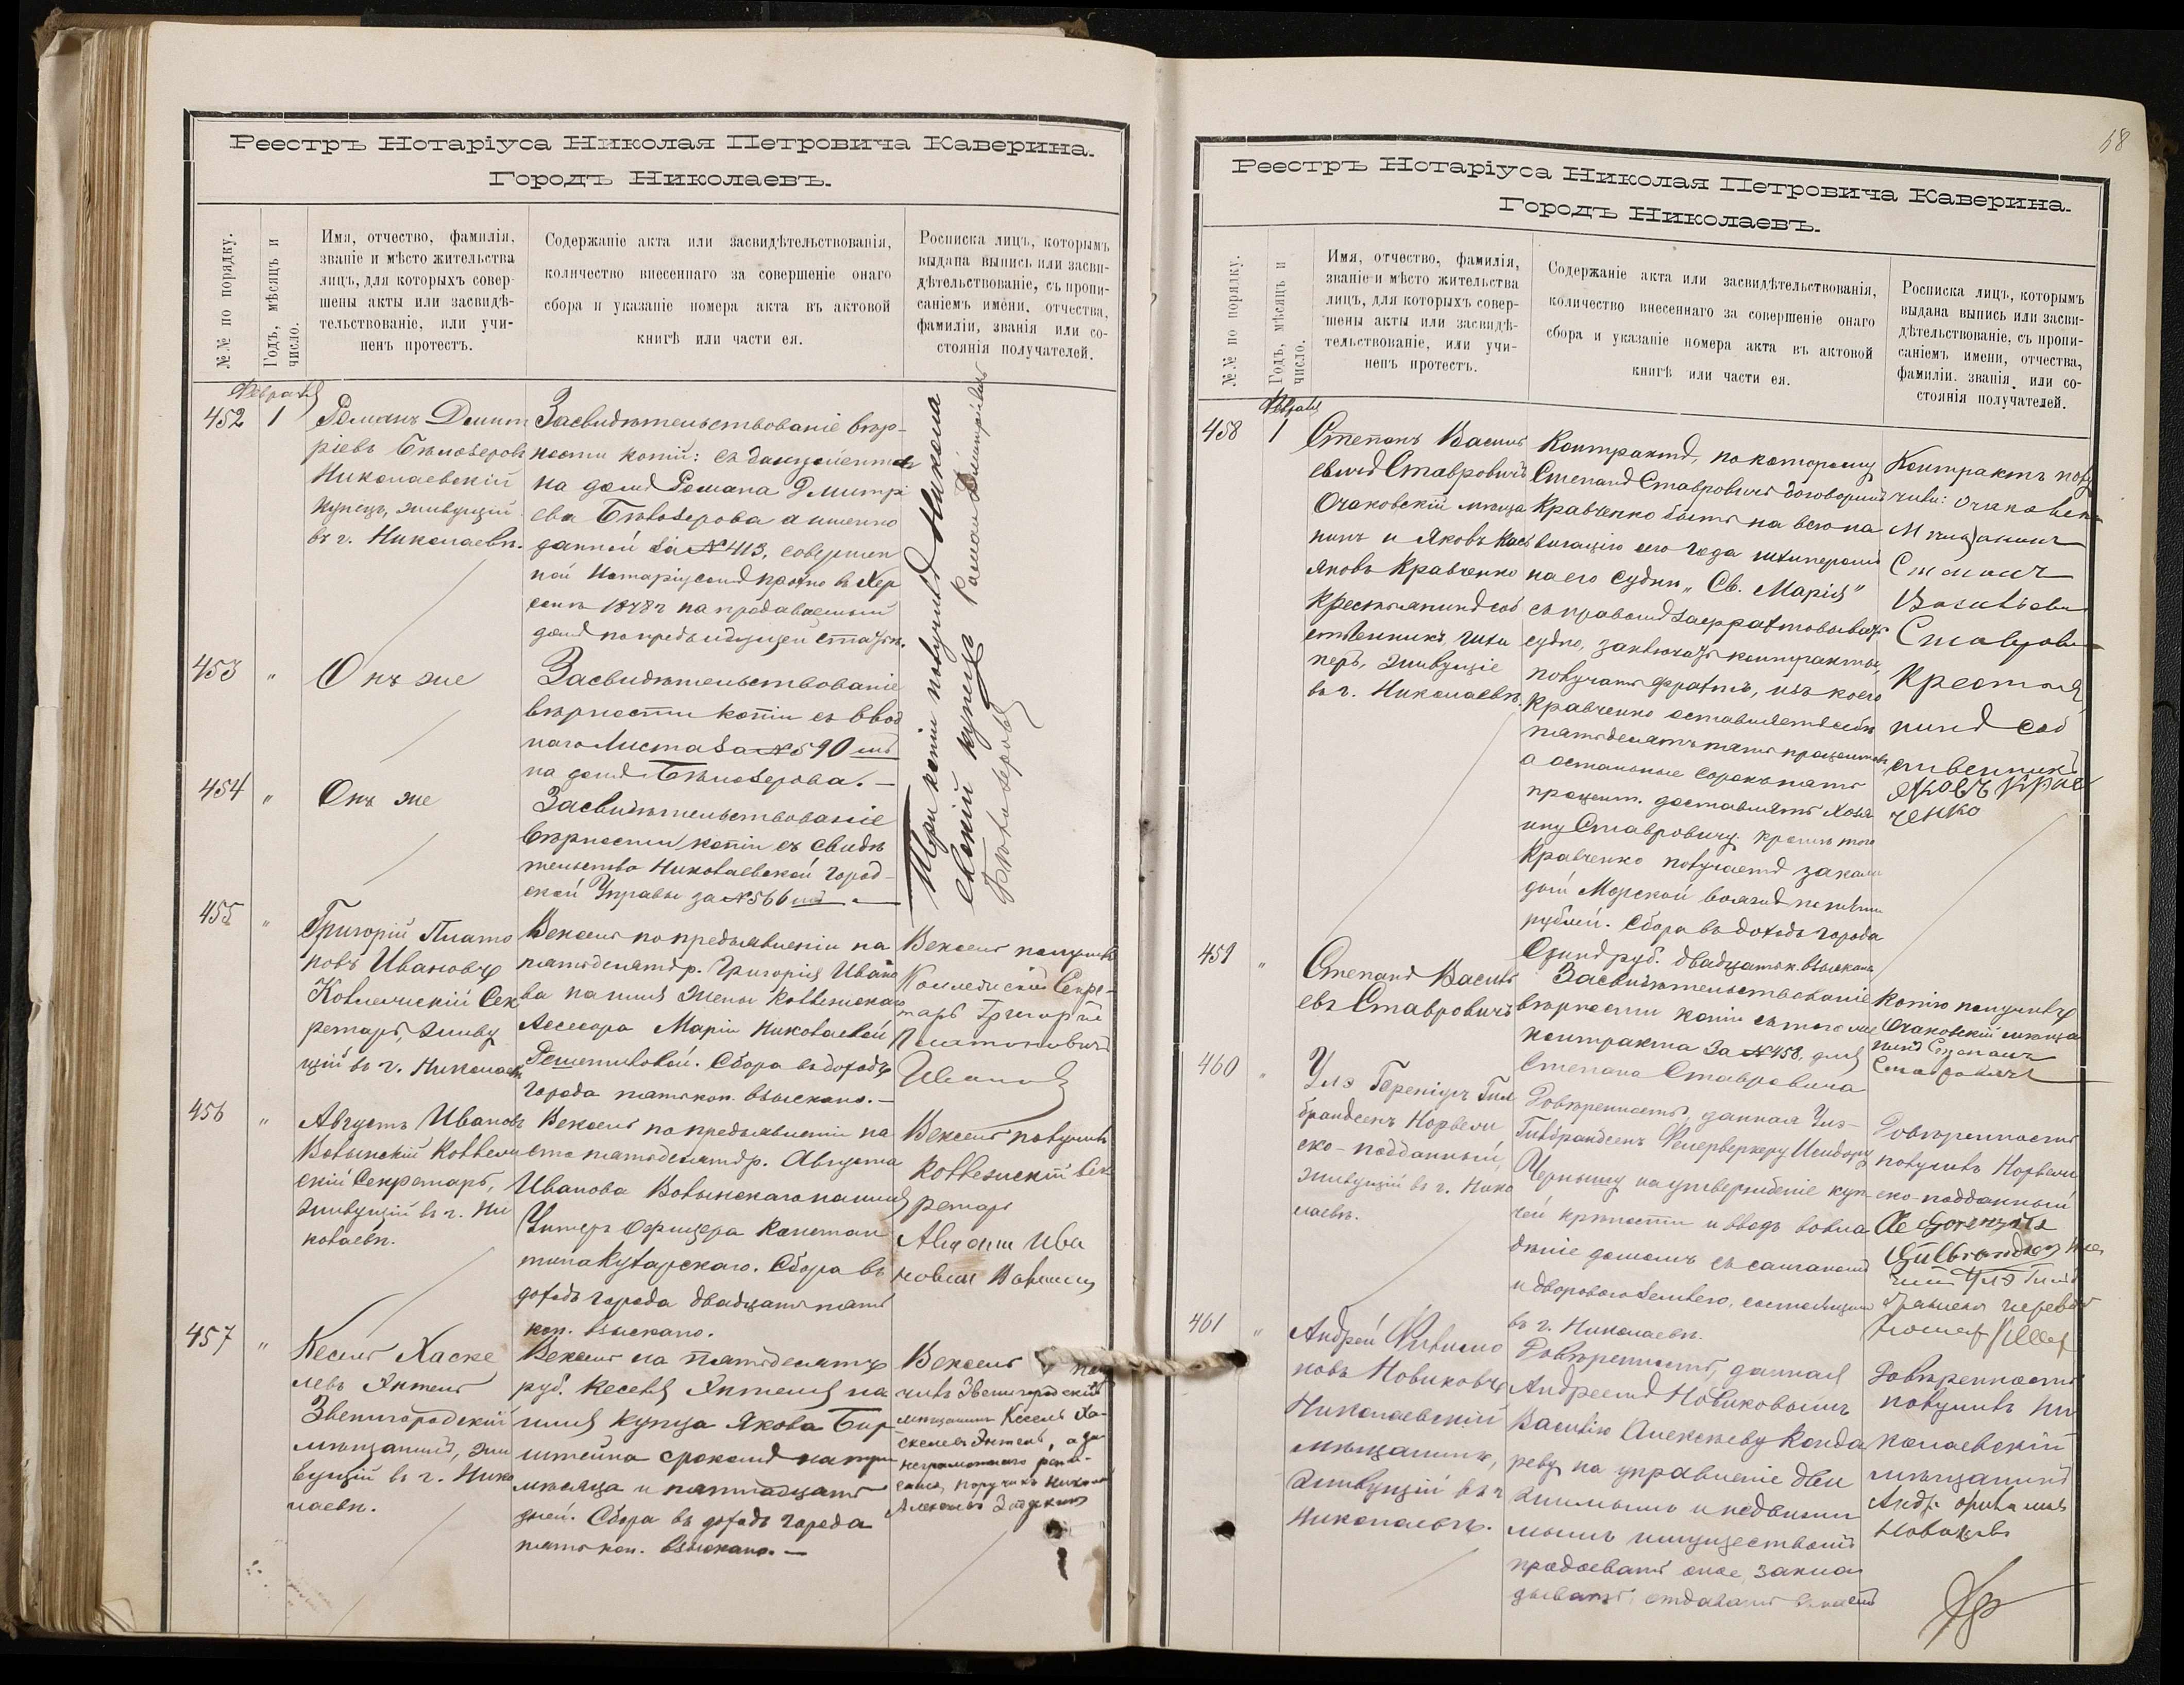 Реестръ Нотаріуса Николая Петровича Каверина.
Городъ Николаевъ.
№№ по порядку.
Годъ, мѣсяцъ и
число.
Имя, отчество, фамилія,
званіе и мѣсто жительства
лицъ, для которыхъ совер-
шены акты или засвидѣ-
тельствованіе, или учи-
ненъ протестъ.
Содержаніе акта или засвидѣтельствованія,
количество внесеннаго за совершеніе онаго
сбора и указаніе номера акта въ актовой
книгѣ или части ея.
Росписка лицъ, которымъ
выдана выпись или засви-
дѣтельствованіе, съ пропи-
саніемъ имени, отчества,
фамиліи, званія или со-
стоянія получателей.
Февраля
452
1
Романъ Дмит
ріевъ Бѣлозеровъ
Николаевскій
купецъ, живущій
въ г. Николаевѣ.
Засвидѣтельствованіе вѣр-
ности копій: съ документовъ
на домъ Романа Дмитрі
ева Бѣлозерова а именно
данной за № 413, совершен
ной Нотаріусомъ въ Хер
сонѣ 1878 г на продаваемый
домъ по предъидущей статьѣ.
Три копіи получилъ Никола
евскій купецъ Романъ Дмитріевъ
Бѣлозеровъ
453
"
Онъ же
Засвидѣтельствованіе
вѣрности копіи съ ввод
наго листа за № 590 мъ
на домъ Бѣлозерова. —
454
"
Онъ же
Засвидѣтельствованіе
вѣрности копіи съ свидѣ
тельства Николаевской Город-
ской Управы за № 566 мъ. —
455
"
Григорій Плато
новъ Ивановъ
Коллежскій Сек
ретарь, живу
щій въ г. Николаевѣ
Вексель по предъявленіи на
пятьдесятъ р. Григорія Ивано
ва на имя жены Коллежскаго
Ассесора Маріи Николаевой
Решетиловой. Сбора въ доходъ
города пять коп. взыскано. —
Вексель получилъ
Коллежскій Секре-
тарь Григорій
Платоновичъ
Ивановъ
456
"
Августъ Ивановъ
Волынскій Коллеж
скій Секретарь,
живущій въ г. Ни
колаевѣ.
Вексель по предъявленіи на
сто пятьдесятъ р. Августа
Иванова Волынскаго на имя
Унтеръ Офицера Констан
тина Кухарскаго. Сбора въ
доходъ города двадцать пять
коп. взыскано.
Вексель получилъ
Коллежскій Сек
ретарь
Августъ Ива
новъ Волынскій
457
"
Кесель Хаске
левъ Энтель
Звенигородскій
мѣщанинъ, жи
вущій въ г. Нико
лаевѣ.
Вексель на пятьдесятъ
руб. Кеселя Энтеля на
имя купца Якова Бир
штейна срокомъ на три
мѣсяца и пятнадцать
дней. Сбора въ доходъ города
пять коп. взыскано. —
Вексель полу
чилъ Звенигородскій
мѣщанинъ Кесель Ха-
скелевъ Энтель, а за
неграмотнаго роспи-
сался, поручикъ Никол
58
Реестръ Нотаріуса Николая Петровича Каверина.
Городъ Николаевъ.
№№ по порядку.
Годъ, мѣсяцъ и
число.
Имя, отчество, фамилія,
званіе и мѣсто жительства
лицъ, для которыхъ совер-
шены акты или засвидѣ-
тельствованіе, или учи-
ненъ протестъ.
Содержаніе акта или засвидѣтельствованія,
количество внесеннаго за совершеніе онаго
сбора и указаніе номера акта въ актовой
книгѣ или части ея.
Росписка лицъ, которымъ
выдана выпись или засви-
дѣтельствованіе, съ пропи-
саніемъ имени, отчества,
фамиліи. званія или со-
стоянія получателей.
Февраля
458
1
Степанъ Василь
евичъ Ставровичъ
Очаковскій мѣща
нинъ и Яковъ
Кравченко
крестьянинъ соб
ственникъ шки
перъ, живущіе
въ г. Николаевѣ.
Контрактъ, по которому
Степанъ Ставровичъ договорилъ
Кравченко быть на всю на
вигацію сего года шкиперомъ
на его суднѣ „Св. Марія"
съ правомъ зафрахтовывать
судно, заключать контракты,
получать фрахтъ, изъ коего
Кравченко оставляетъ себѣ
пятьдесятъ пять процентовъ
а остальные сорокъ пять
процент. доставлять хозя
ину Ставровичу кромѣ того
Кравченко получаетъ за каж
дый Морской вояжъ по пяти
рублей. Сбора въ доходъ города
Одинъ руб. двадцать к. взыскано
Контрактъ полу
чили: Очаковск
Мѣщанинъ
Степанъ
Васильевъ
Ставрови
Крестья
нинъ соб
ственникъ
Яковъ Крав
ченко
459
"
Степанъ Василь
евъ Ставровичъ
Засвидѣтельствованіе
вѣрности копіи съ того же
контракта за № 458, для
Степана Ставровича
Копію получилъ
Очаковскій мѣща
нинъ Степанъ
Ставровичъ
460
"
Улэ Гереніусъ Гюл
брандсенъ Норвеж
ско-подданный,
живущій въ г. Нико
лаевѣ.
Довѣренность, данная Улэ-
Гилбрандсенъ Фейерверкеру Исидору
Чернышу на утвержденіе куп-
чей крѣпости и вводъ вовла
дѣніе домомъ съ
и дворового землею, состоящимъ
въ г. Николаевѣ.
Довѣренность
получилъ Норвеж
ско-подданный
Gulbrandsen
461
"
Андрей Филимо
новъ Новиковъ
Николаевскій
мѣщанинъ,
живущій въ г
Николаевѣ.
Довѣренность, данная
Андреемъ Новиковымъ
Василію Алексѣеву Конда
реву на управленіе дви
жимымъ и недвижи
мымъ имуществомъ
продавать оное, закла
дывать, отдавать въ наемъ
Довѣренность
получилъ Ни
колаевскій
мѣщанинъ
Андр Филимо
Новиковъ